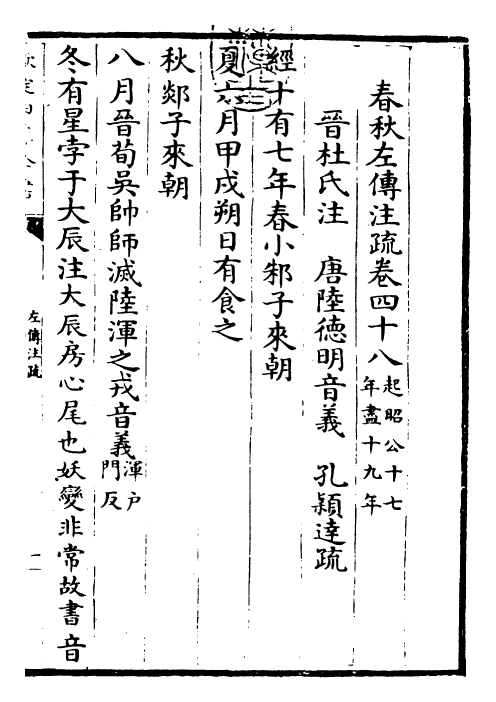 春秋左傳注疏卷四十八起昭公十七年盡十九年
晉杜氏注　唐陸德明音義　孔穎達疏
經十有七年春小邾子來朝
夏六月甲戌朔日有食之
秋郯子來朝
八月晉荀吳帥師滅陸渾之戎音義渾户門反
冬有星孛于大辰注大辰房心尾也妖變非常故書音
左傳注疏